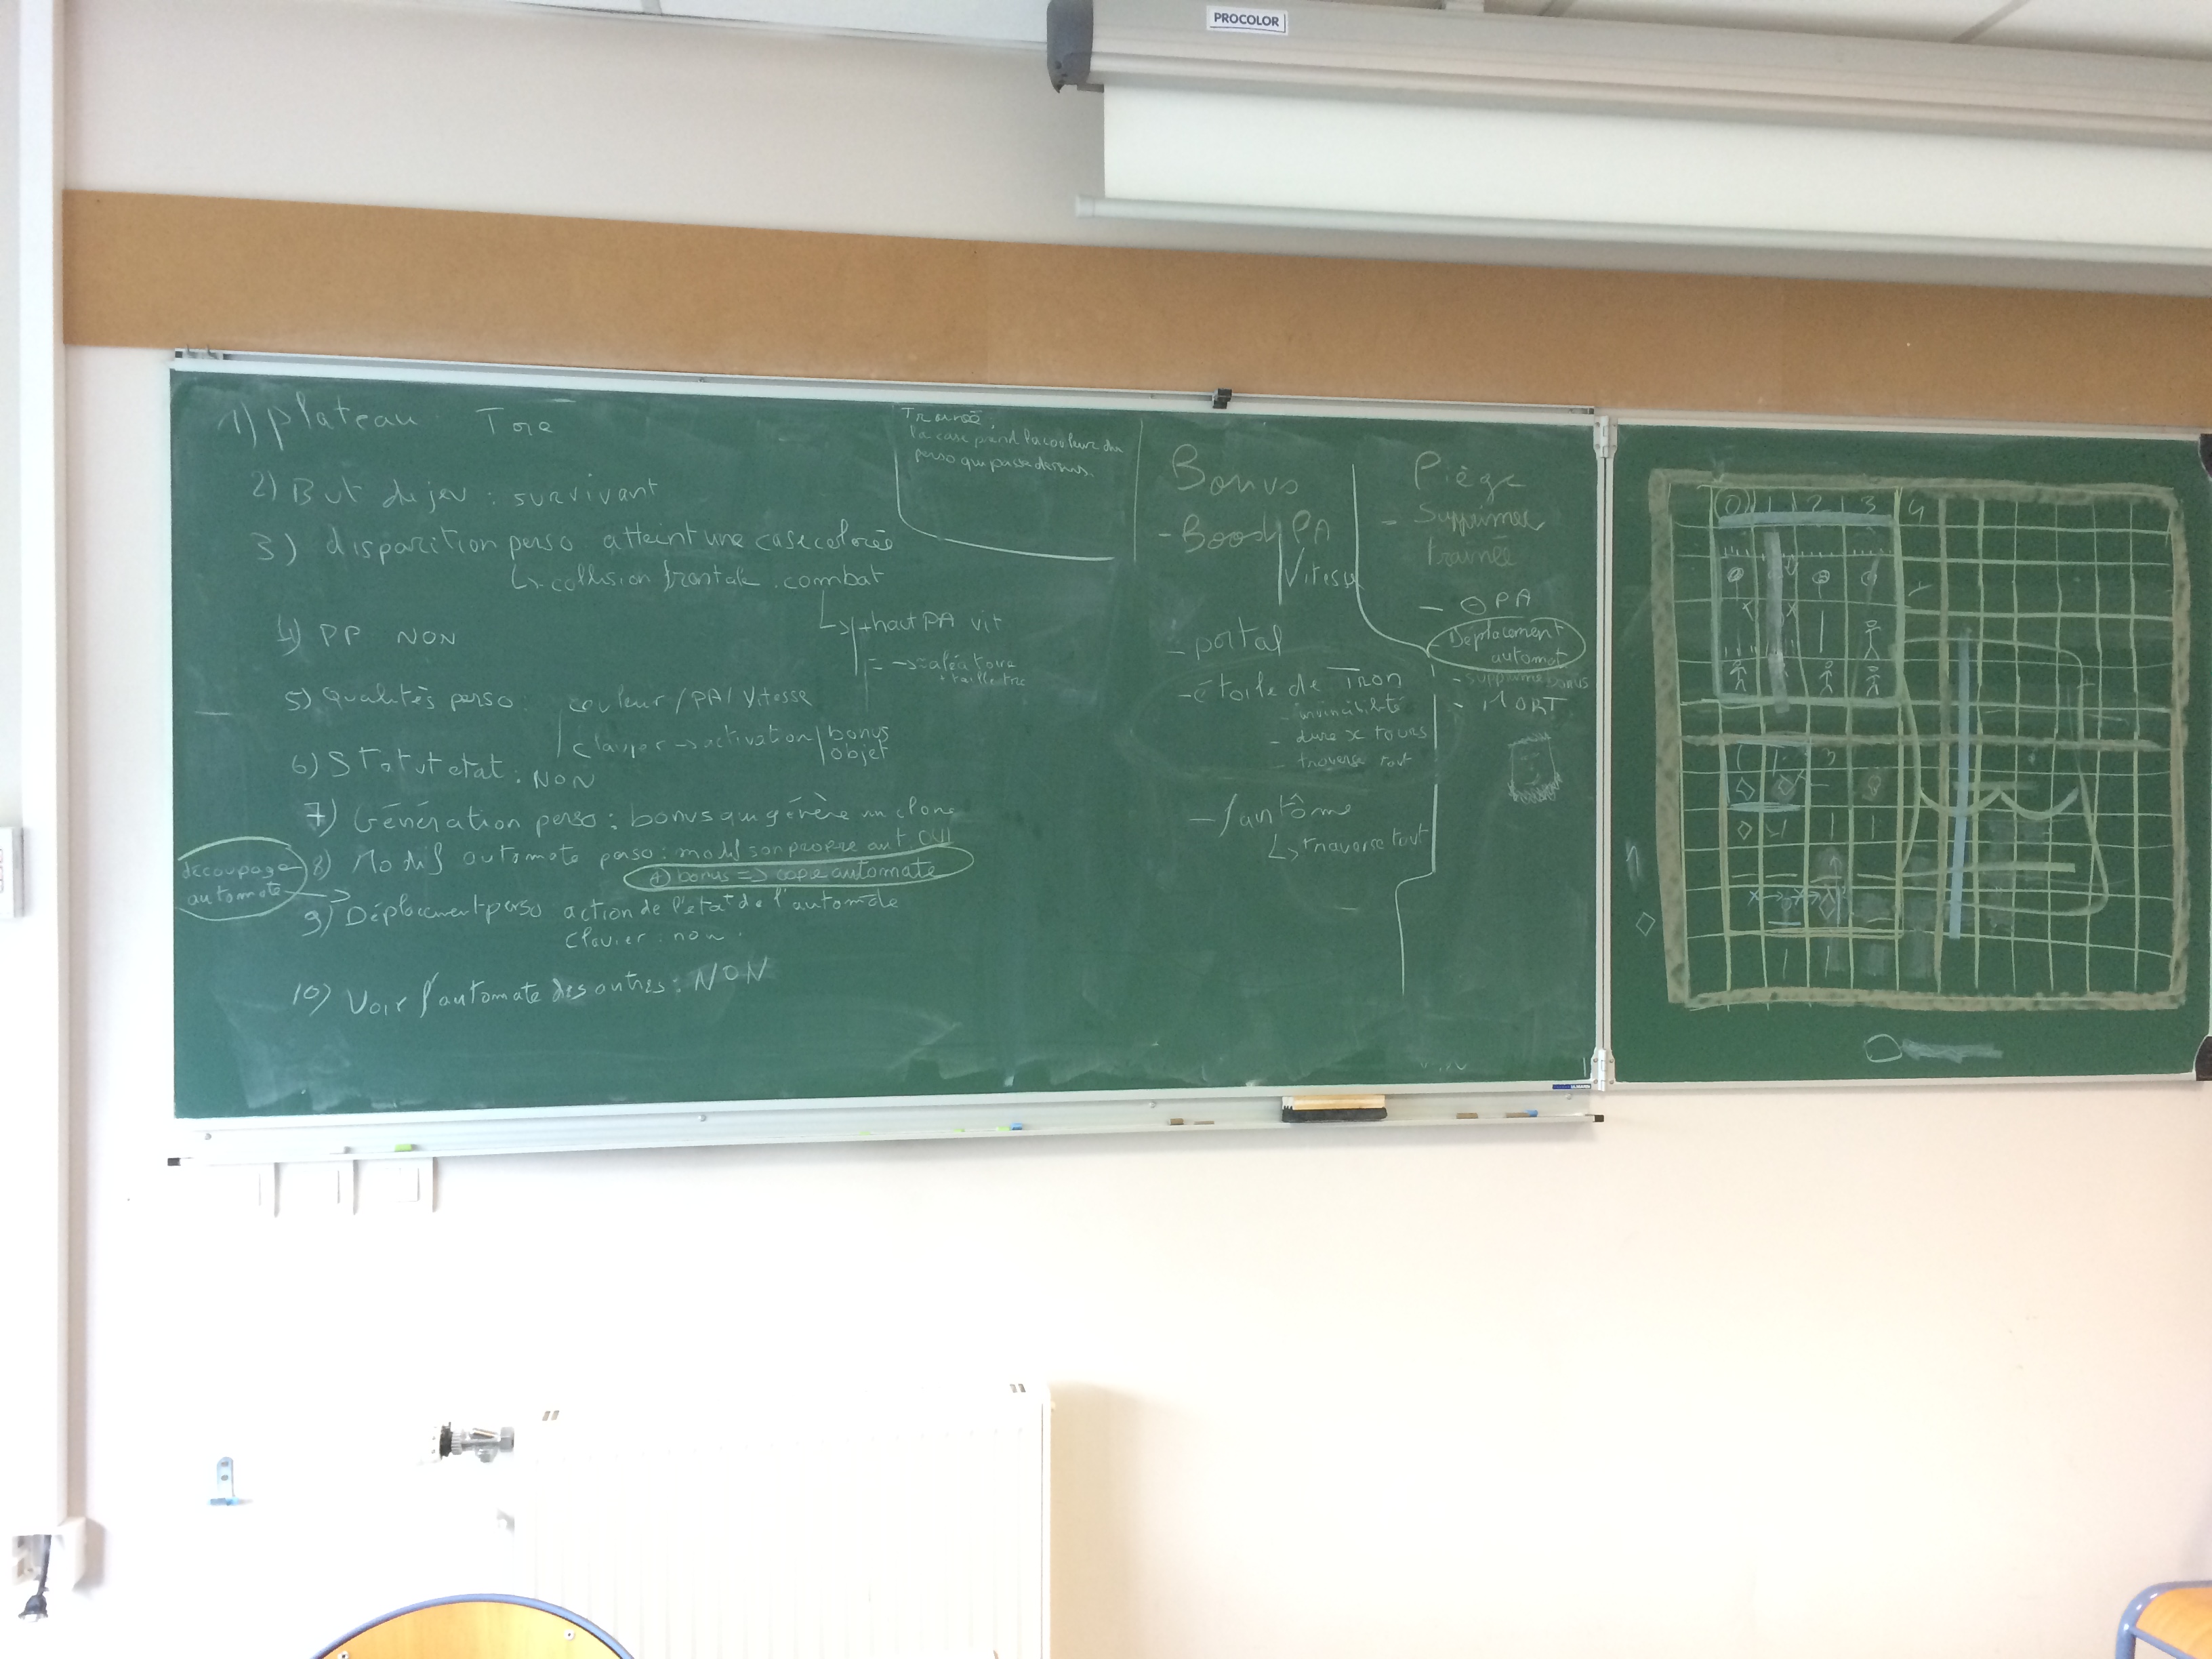 PROCOLOR
1) plateau Tore
2) But du jeu : survivant
3) disparition perso atteint une case colorée
↳ collision frontale . combat
↳ + haut PA vit
= → aléatoire
4) PP NON
5) Qualités perso : couleur / PA / Vitesse
clavier → activation bonus
objet
6) Statut etat : NON
7) Génération perso : bonus qui génère un clone
8) Modif automate perso : modif son propre aut. OUI
⊕ bonus => copie automate
découpage
automate →
9) Déplacement perso action de l'état de l'automate
clavier : non.
10) Voir l'automate des autres : NON
Trainée :
la case prend la couleur du
perso qui passe dessus.
Bonus
- Boost PA
Vitesse
- portal
- étoile de Tron
- invincibilité
- dure x tours
- traverse tout
- fantôme
↳ traverse tout
Piège
- Supprimer
trainée
- ⊖ PA
- Déplacement
automat
- supprime bonus
- MORT
0 1 2 3 4